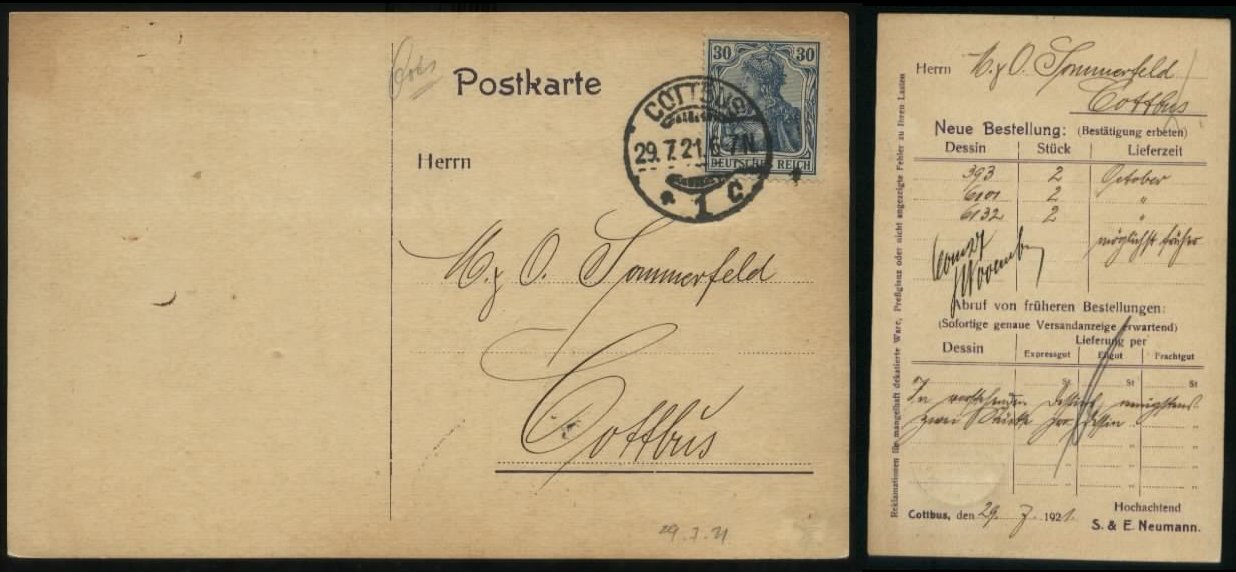 Postkarte
30 30
DEUTSCHES REICH
COTTBUS
29.7.21.6-7N.
* 1 C.
Herrn
M. & O. Sommerfeld
Cottbus
29.7.21
Herrn M. & O. Sommerfeld
Cottbus
Neue Bestellung: (Bestätigung erbeten)
Dessin Stück Lieferzeit
393 2 October
6101 2 "
6132 2 "
möglichst früher
Abruf von früheren Bestellungen:
(Sofortige genaue Versandanzeige erwartend)
Dessin Lieferung per
Expressgut Eilgut Frachtgut
St St St
In vorstehenden Dessins wenigstens
zwei Stücke per Dessin
" " "
" " "
" " "
Cottbus, den 29. 7. 1921.
Hochachtend
S. & E. Neumann.
Reklamationen für mangelhaft dekatierte Ware, Preßglanz oder nicht angezeigte Fehler zu Ihren Lasten